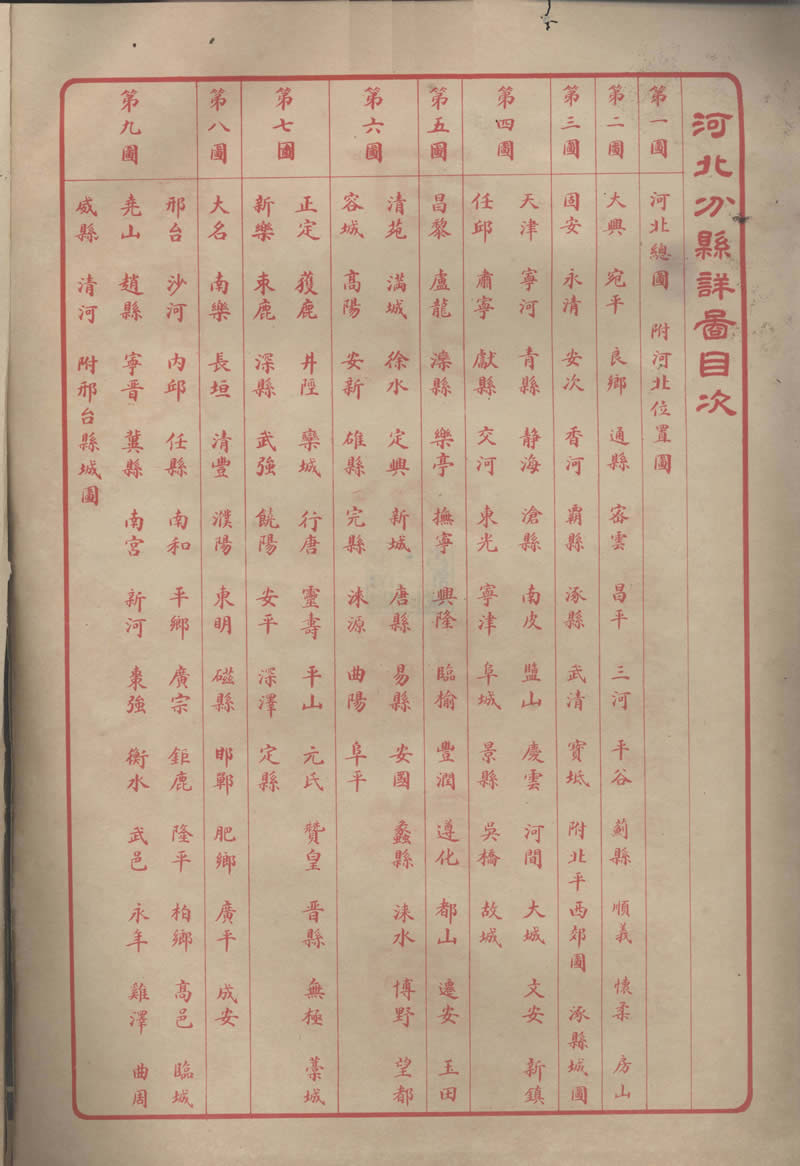 河北分縣詳圖目次
第一圖 河北總圖 附河北位置圖
第二圖 大興 宛平 良鄉 通縣 密雲 昌平 三河 平谷 薊縣 順義 懷柔 房山
第三圖 固安 永清 安次 香河 霸縣 涿縣 武清 寶坻 附北平西郊圖 涿縣城圖
第四圖 天津 寧河 青縣 靜海 滄縣 南皮 鹽山 慶雲 河間 大城 文安 新鎮
任邱 肅寧 獻縣 交河 東光 寧津 阜城 景縣 吳橋 故城
第五圖 昌黎 盧龍 灤縣 樂亭 撫寧 興隆 臨榆 豐潤 遵化 都山 遷安 玉田
第六圖 清苑 滿城 徐水 定興 新城 唐縣 易縣 安國 蠡縣 淶水 博野 望都
容城 高陽 安新 雄縣 完縣 淶源 曲陽 阜平
第七圖 正定 獲鹿 井陘 欒城 行唐 靈壽 平山 元氏 贊皇 晉縣 無極 藁城
新樂 束鹿 深縣 武強 饒陽 安平 深澤 定縣
第八圖 大名 南樂 長垣 清豐 濮陽 東明 磁縣 邯鄲 肥鄉 廣平 成安
第九圖 邢台 沙河 內邱 任縣 南和 平鄉 廣宗 鉅鹿 隆平 柏鄉 高邑 臨城
堯山 趙縣 寧晉 冀縣 南宮 新河 棗強 衡水 武邑 永年 雞澤 曲周
威縣 清河 附邢台縣城圖